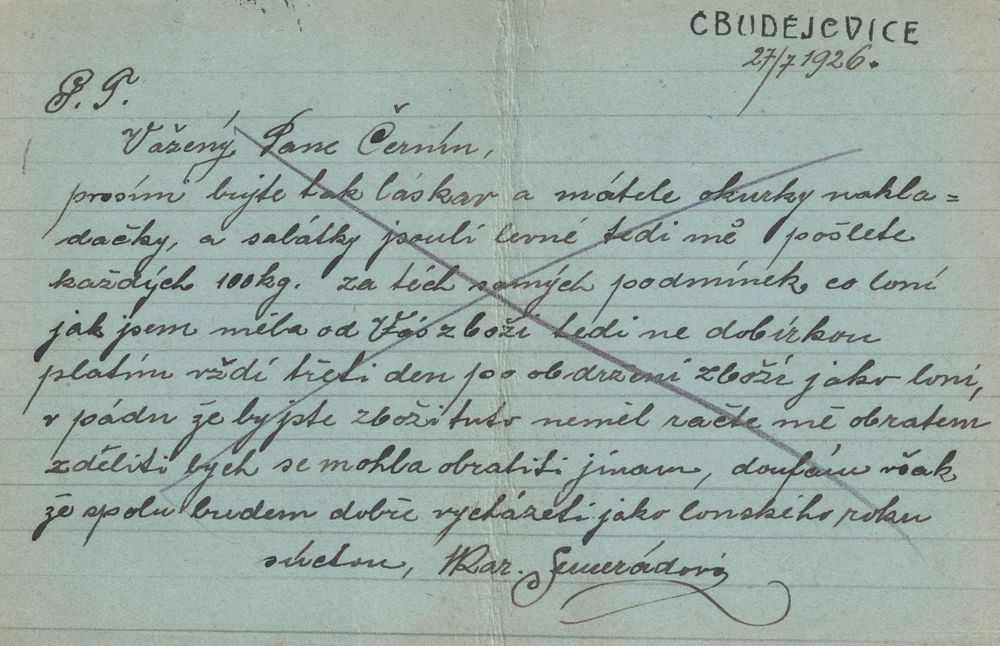 ČBUDĚJOVICE
27/7 1926.
P. T.
Vážený Pane Černín,
prosím bujte tak láskav a mátele okurky nakla=
dačky, a salátky jsoulí levné tedi mě pošlete
každých 100kg. za těch samých podmínek co loní
jak jsem měla od Vás zboží tedi ne dobírkou
platím vždí třetí den po obdržení zboží jako loní,
v pádu že by jste zboží tuto neměl račte mě obratem
zděliti bych se mohla obratiti jinam, doufám však
že spolu budem dobře vycházeti jako lonského roku
s úctou, Mar. Semerádová